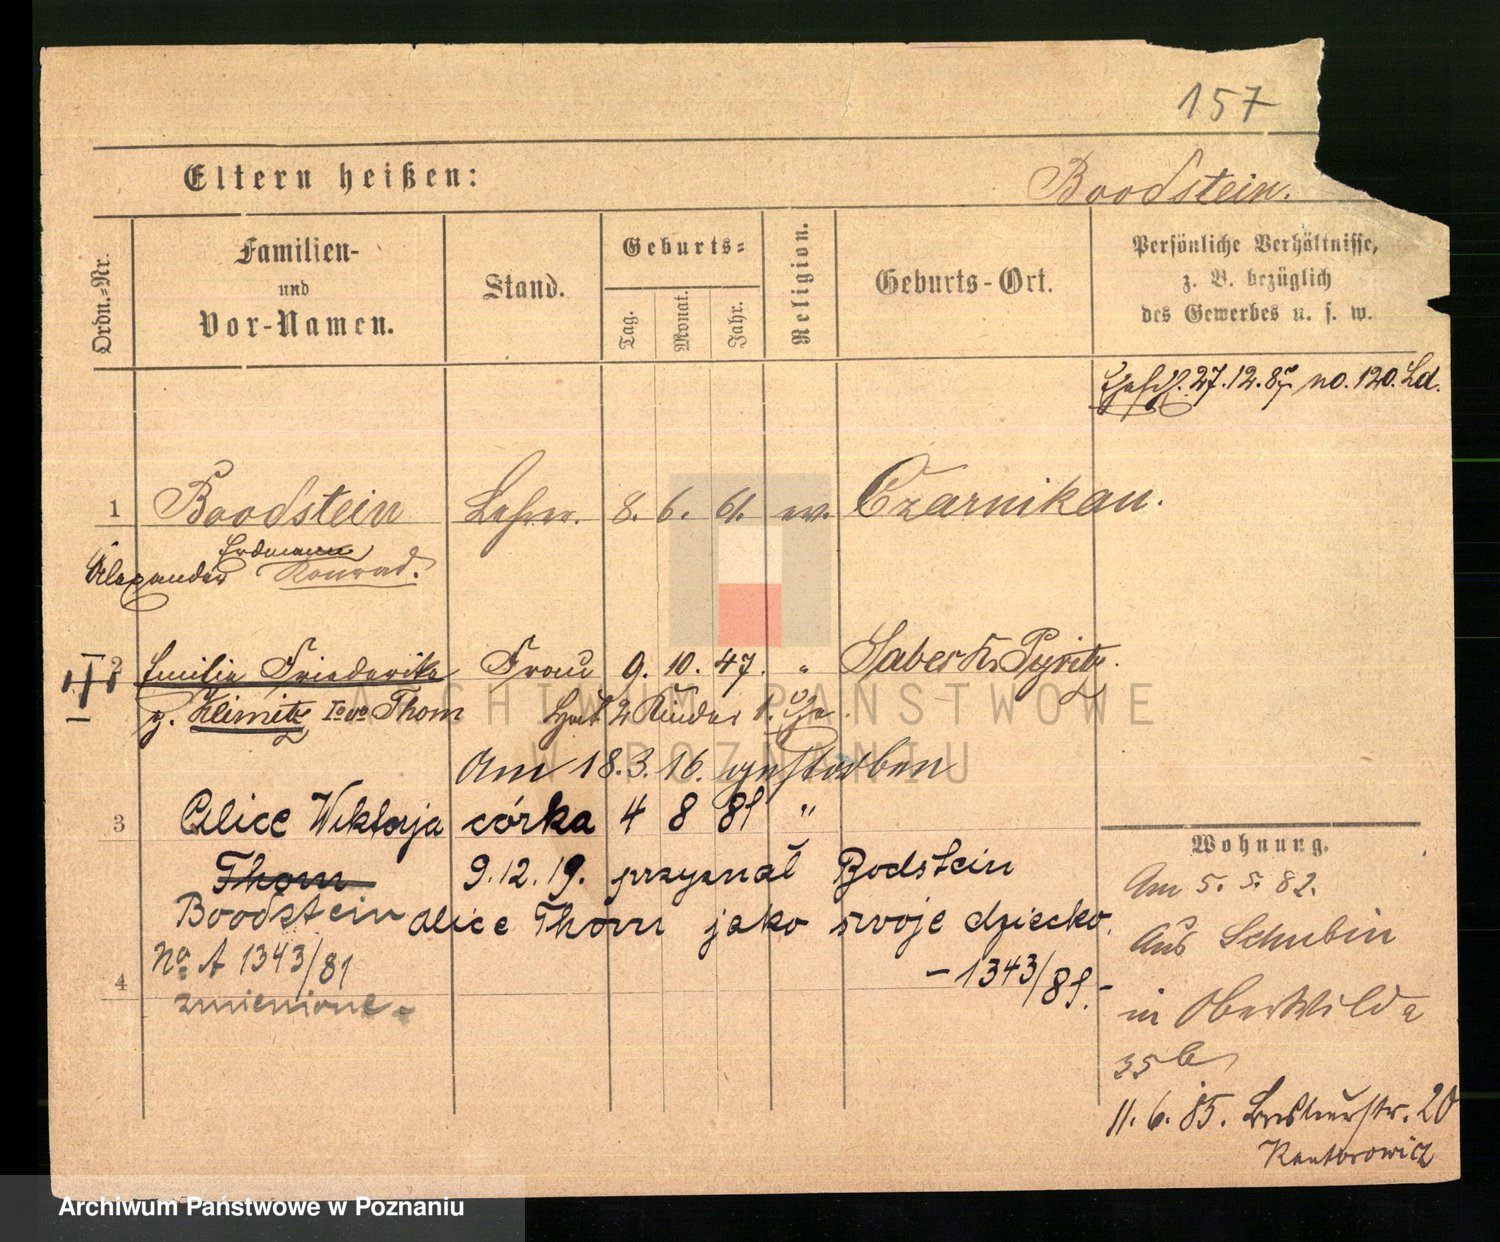 157
Eltern heißen:
Boodstein.
Ordn.-Nr.
Familien-
und
Vor-Namen.
Stand.
Geburts-
Tag.
Monat.
Jahr.
Religion.
Geburts-Ort.
Persönliche Verhältnisse,
z. B. bezüglich
des Gewerbes u. s. w.
27.12.85 no. 120. Ld.
1 Boodstein Lehrer. 8. 6. 61. ev. Czarnikau.
Erdmann
Alexander Konrad.
2 Emilie Friederike Frau 9. 10. 47. " Pyritz.
g. Klimitz Thom Hat 2 Kinder 1. Ehe.
Am 18.3.16. gestorben
3 Alice Wiktorja córka 4 8 81 "
Thom 9.12.19. przyznał Bodstein
Boodstein Alice Thom jako swoje dziecko.
No A 1343/81 - 1343/81. -
4 zmienione -
Wohnung.
Am 5. 5. 82.
aus Schubin
in OberWilda
35 b
11. 6. 85. 20
Kantorowicz
ARCHIWUM PAŃSTWOWE
W POZNANIU
Archiwum Państwowe w Poznaniu